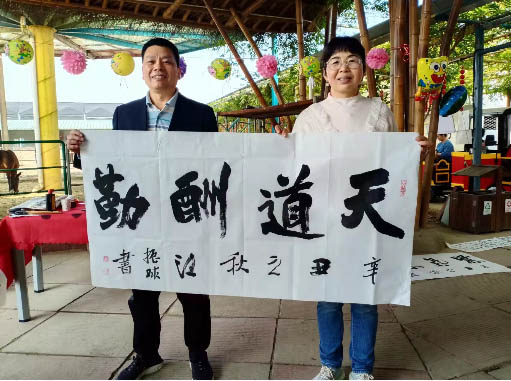 天道酬勤
辛丑之秋江振球書